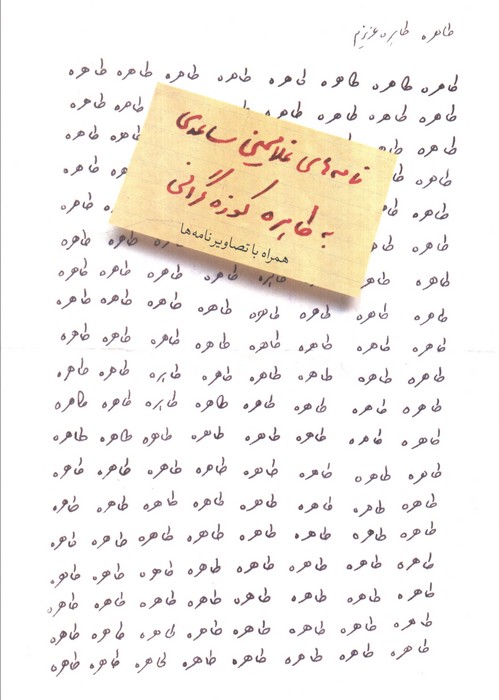 طاهره طاهره عزیزم
طاهره طاهره طاهره طاهره طاهره طاهره طاهره طاهره
طاهره طاهره طاهره طاهره طاهره طاهره
طاهره طاهره طاهره
طاهره طاهره طاهره
طاهره طاهره
طاهره طاهره طاهره
نامه‌های غلامحسین ساعدی
به طاهره کوزه‌گرانی
همراه با تصاویر نامه‌ها
طاهره طاهره طاهره طاهره طاهره طاهره طاهره
طاهره طاهره طاهره طاهره طاهره طاهره طاهره طاهره
طاهره طاهره طاهره طاهره طاهره طاهره طاهره طاهره
طاهره طاهره طاهره طاهره طاهره طاهره طاهره طاهره
طاهره طاهره طاهره طاهره طاهره طاهره طاهره طاهره
طاهره طاهره طاهره طاهره طاهره طاهره طاهره طاهره
طاهره طاهره طاهره طاهره طاهره طاهره طاهره طاهره
طاهره طاهره طاهره طاهره طاهره طاهره طاهره طاهره
طاهره طاهره طاهره طاهره طاهره طاهره طاهره طاهره
طاهره طاهره طاهره طاهره طاهره طاهره طاهره طاهره
طاهره طاهره طاهره طاهره طاهره طاهره طاهره طاهره
طاهره طاهره طاهره طاهره طاهره طاهره طاهره طاهره
طاهره طاهره طاهره طاهره طاهره طاهره طاهره طاهره